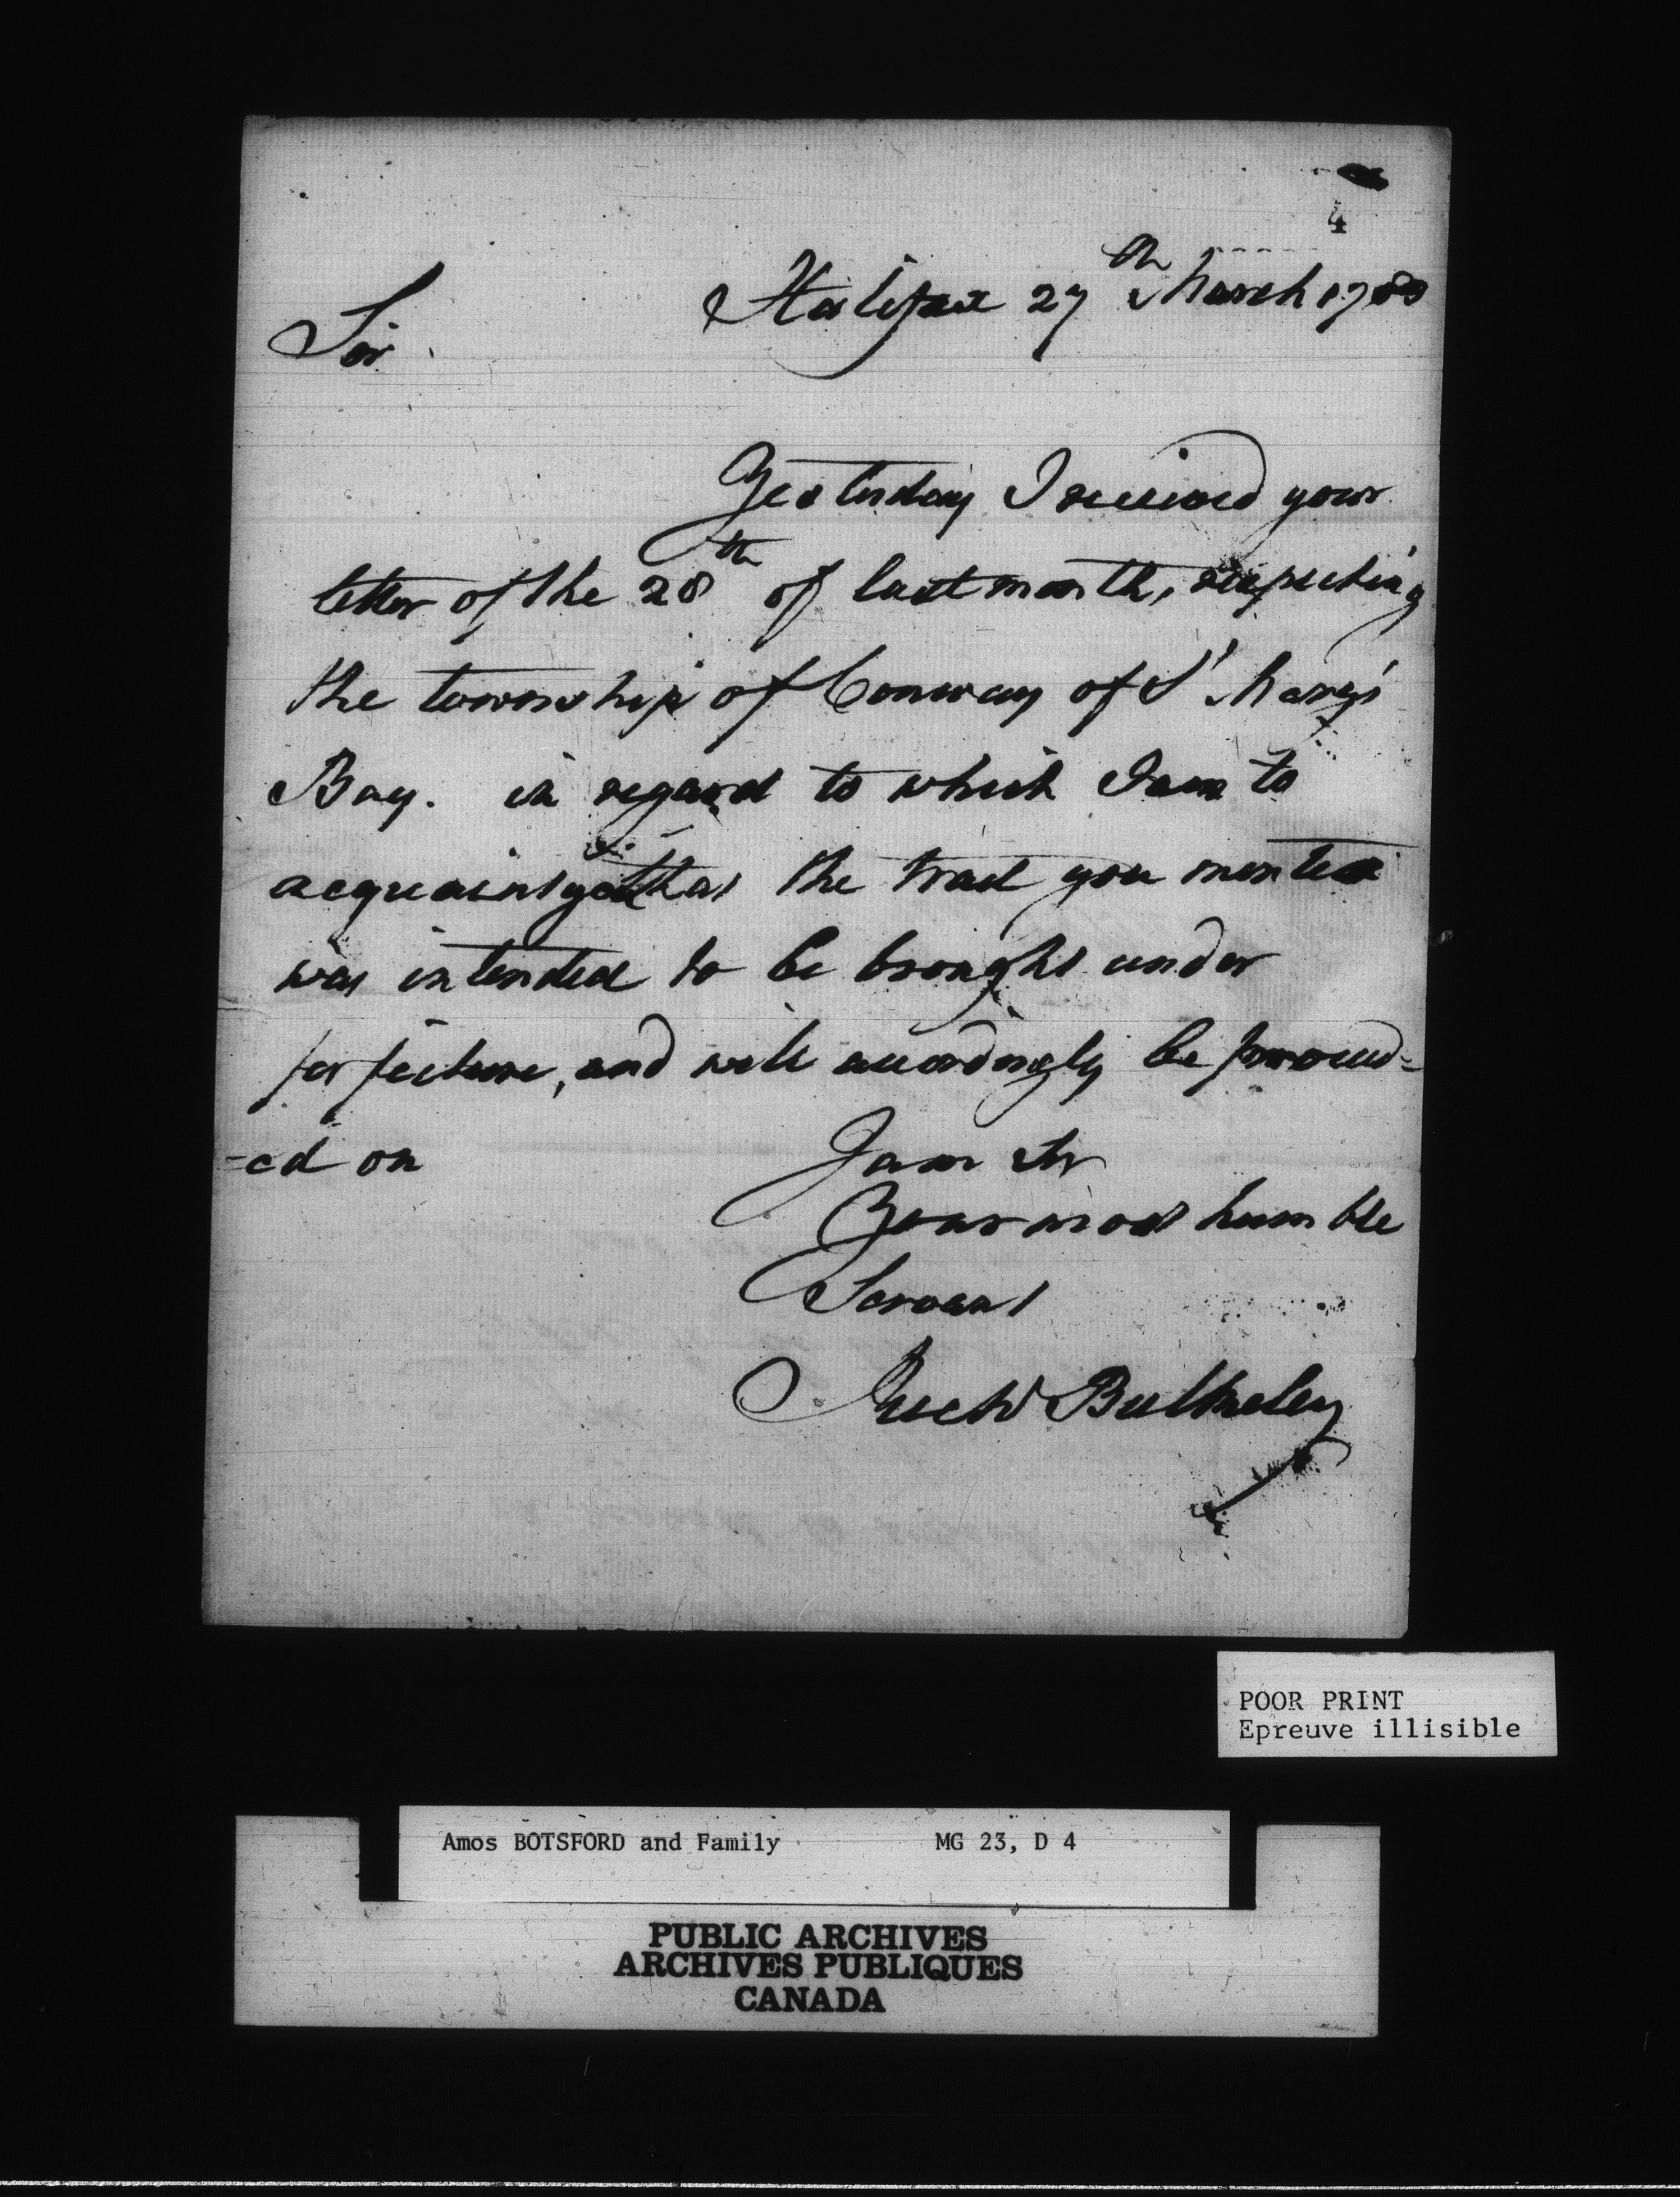 4
Halifax 27th March 1783
Sir
Yesterday I received your
letter of the 28th of last month, respecting
the township of Conway of St Mary's
Bay. in regard to which I am to
acquaint you that the tract you mention
was intended to be brought under
forfeiture, and will accordingly be proceed=
=ed on
I am Sir
Your most humble
Servant
Richd Bulkeley
POOR PRINT
Epreuve illisible
Amos BOTSFORD and Family MG 23, D 4
PUBLIC ARCHIVES
ARCHIVES PUBLIQUES
CANADA